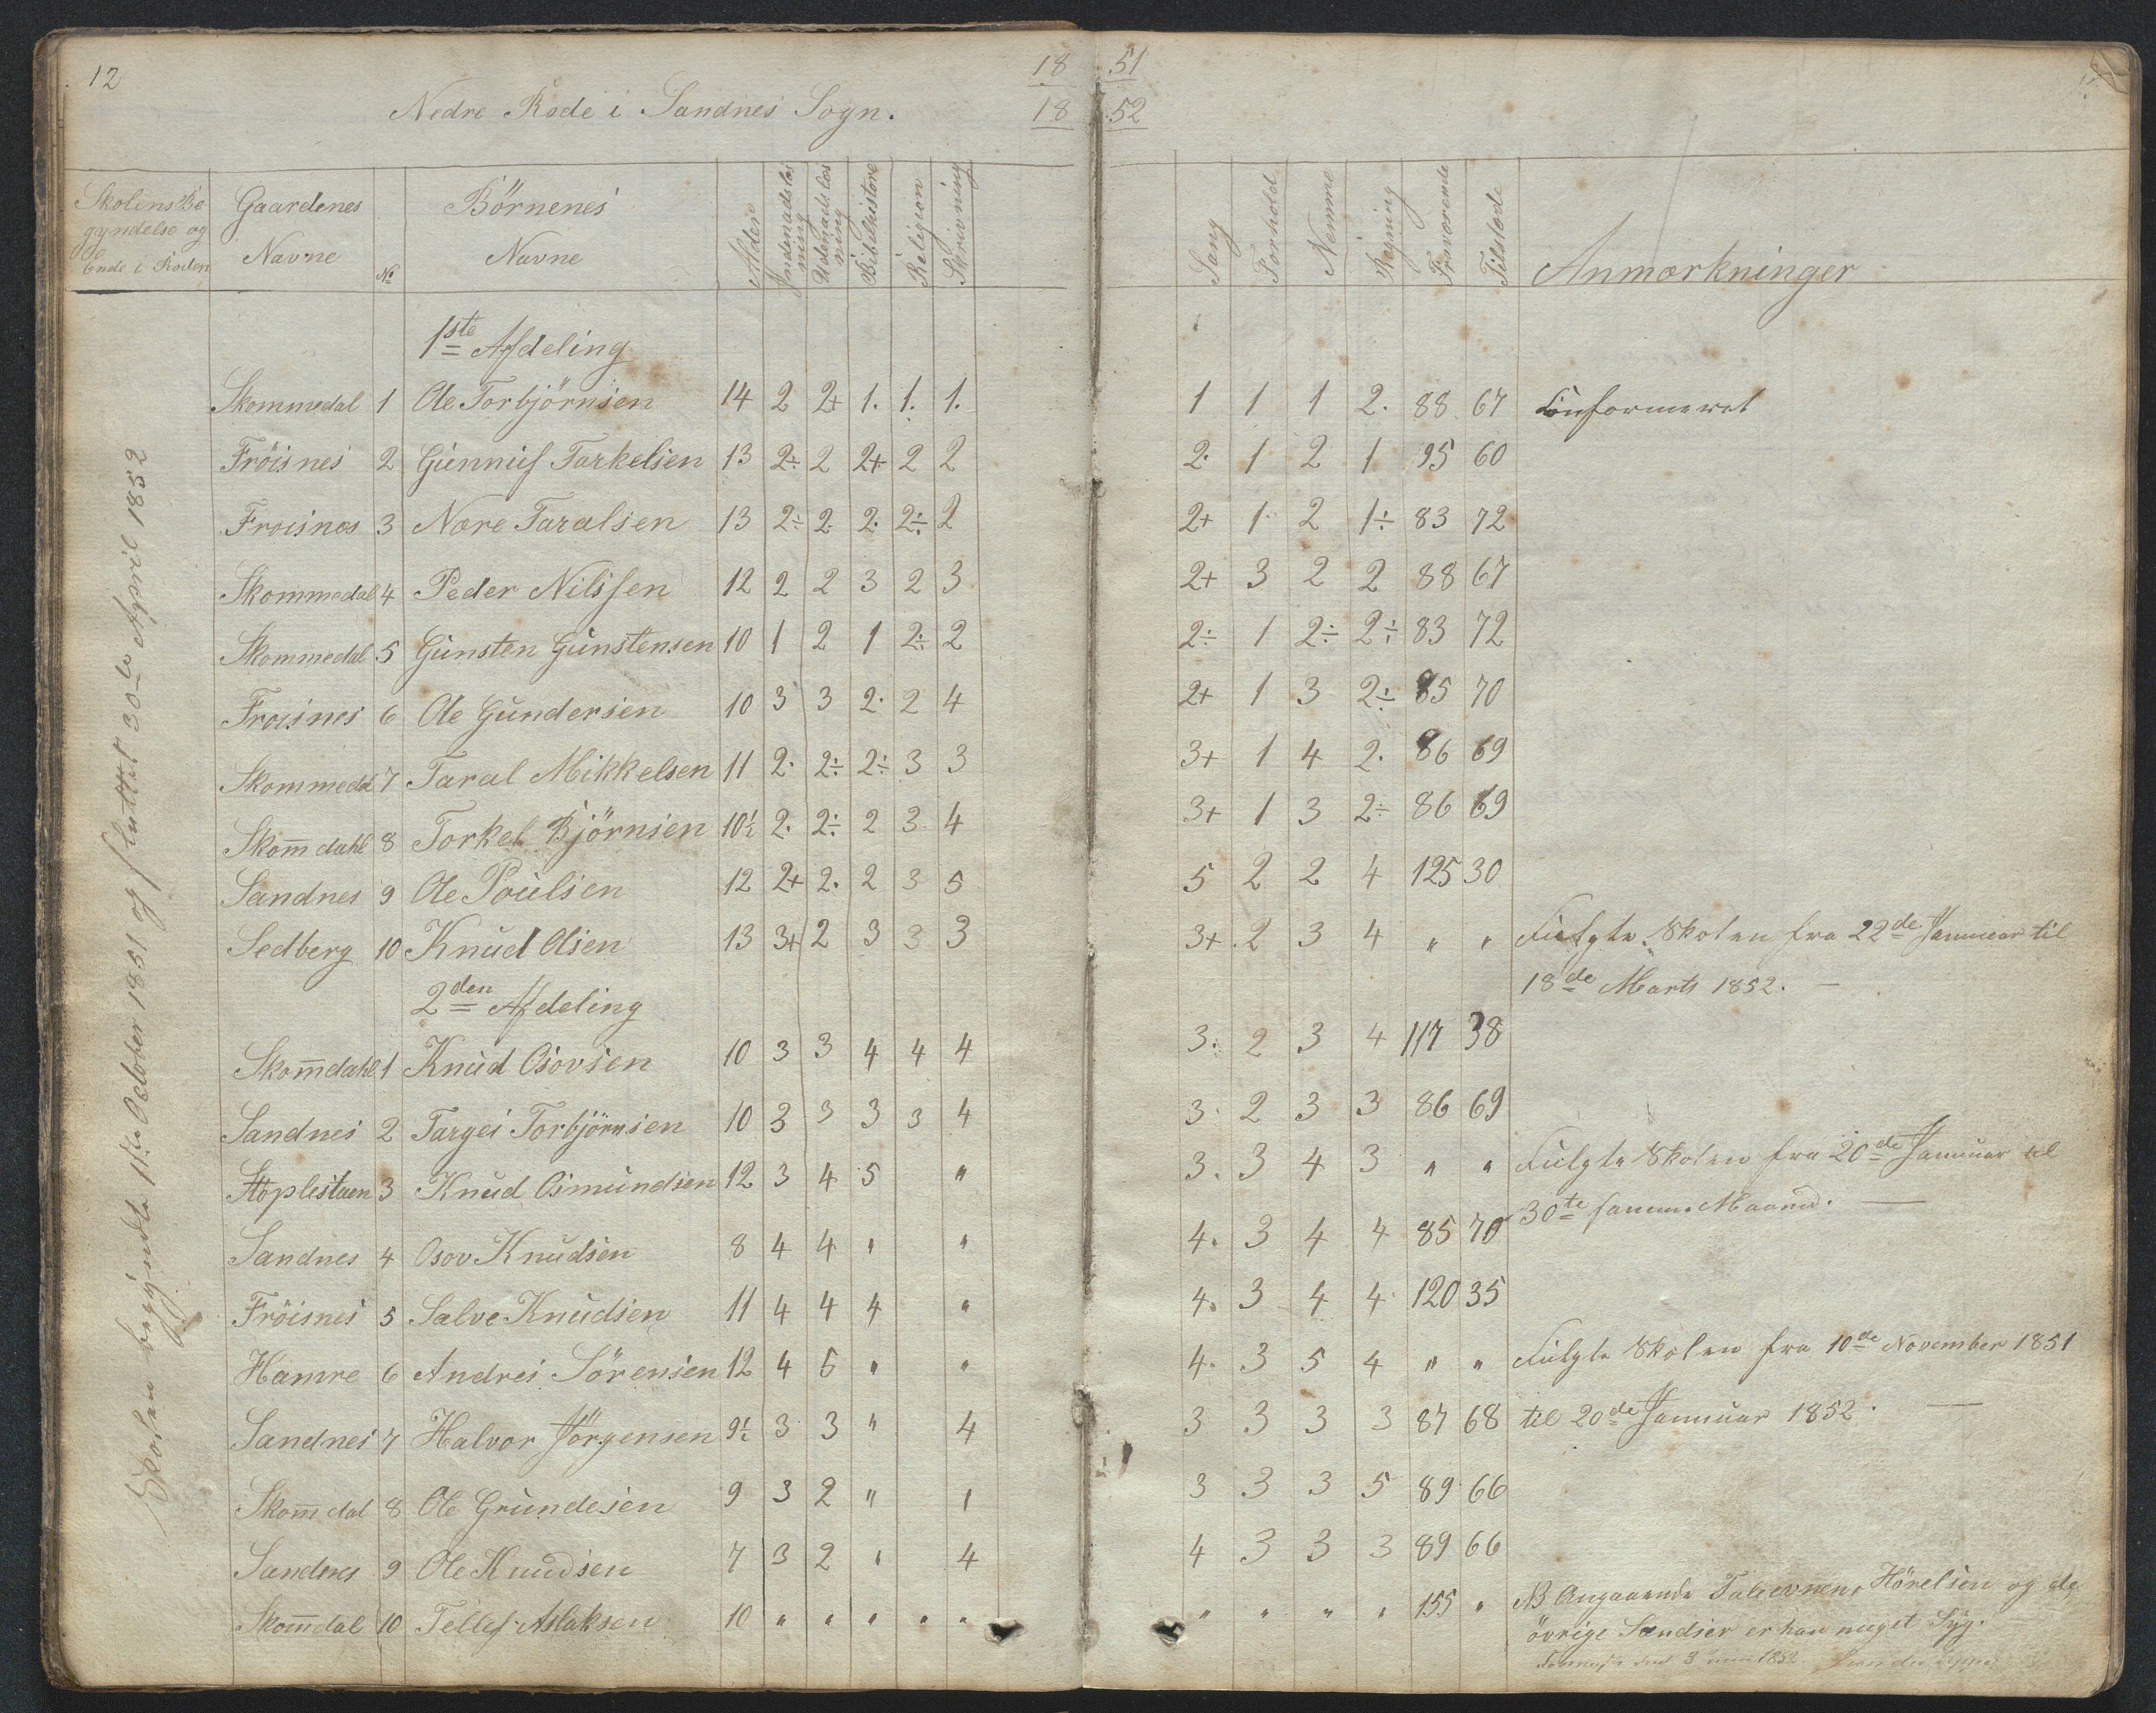 12
Nedre Rode i Sandnes Sogn.
18 51
18 52
Skolens Be
gyndelse og
Ende i Roden
Gaardenes
Navne
No
Börnenes
Navne
Alder
Indenadslæs
ning
Udenadslæs
ning
Bibelhistore
Religion
Skrivning
Sang
Forhold
Nemme
Regning
Fraværende
Tilstæde
Anmærkninger
Skolen begyndte 11te October 1851 og sluttet 30te April 1852
1ste Afdeling
Skommedal 1 Ole Torbjörnsen 14 2 2+ 1. 1. 1. 1 1 1 2. 88 67 Confirmeret
Fröisnes 2 Gunnuf Tarkelsen 13 2÷ 2 2+ 2 2 2. 1 2 1 95 60
Froisnes 3 Nære Taralsen 13 2÷ 2. 2. 2÷ 2 2+ 1 2 1÷ 83 72
Skommedal 4 Peder Nilssen 12 2 2 3 2 3 2+ 3 2 2 88 67
Skommedal 5 Gunsten Gunstensen 10 1 2 1 2÷ 2 2÷ 1 2÷ 2÷ 83 72
Froisnes 6 Ole Gundersen 10 3 3 2. 2 4 2+ 1 3 2÷ 85 70
Skommedal 7 Taral Mikkelsen 11 2. 2÷ 2÷ 3 3 3+ 1 4 2. 86 69
Skom̅dahl 8 Torkel Björnsen 10½ 2. 2÷ 2 3 4 3+ 1 3 2÷ 86 69
Sandnes 9 Ole Poulsen 12 2+ 2. 2 3 5 5 2 2 4 125 30
Sedberg 10 Knud Olsen 13 3+ 2 3 3 3 3+ 2 3 4 " " Fulgte Skolen fra 22de Januar til
18de Marts 1852. —
2den Afdeling
Skom̅dahl 1 Knud Osovsen 10 3 3 4 4 4 3. 2 3 4 117 38
Sandnes 2 Targei Torbjörnsen 10 3 3 3 3 4 3. 2 3 3 86 69
Stoplestuen 3 Knud Osmundsen 12 3 4 5 " 3. 3 4 3 " " Fulgte Skolen fra 20de Januar til
30te samme Maaned. —
Sandnes 4 Osov Knudsen 8 4 4 " " 4. 3 4 4 85 70
Fröisnes 5 Salve Knudsen 11 4 4 4 " 4. 3 4 4 120 35
Hamre 6 Andres Sörensen 12 4 5 " " 4. 3 5 4 " " Fulgte Skolen fra 10de November 1851
Sandnes 7 Halvor Jörgensen 9½ 3 3 " 4 3 3 3 3 87 68 til 20de Januar 1852. —
Skom̅dal 8 Ole Grundesen 9 3 2 " 1 3 3 3 5 89 66
Sandnes 9 Ole Knudsen 7 3 2 " 4 4 3 3 3 89 66
Skom̅dal 10 Tellef Aslaksen 10 " " " " " " " " " 155 " NB Angaaende Taleevnen, Hörelsen og de
övrige Sandser er han meget Syg.
den 3 1852